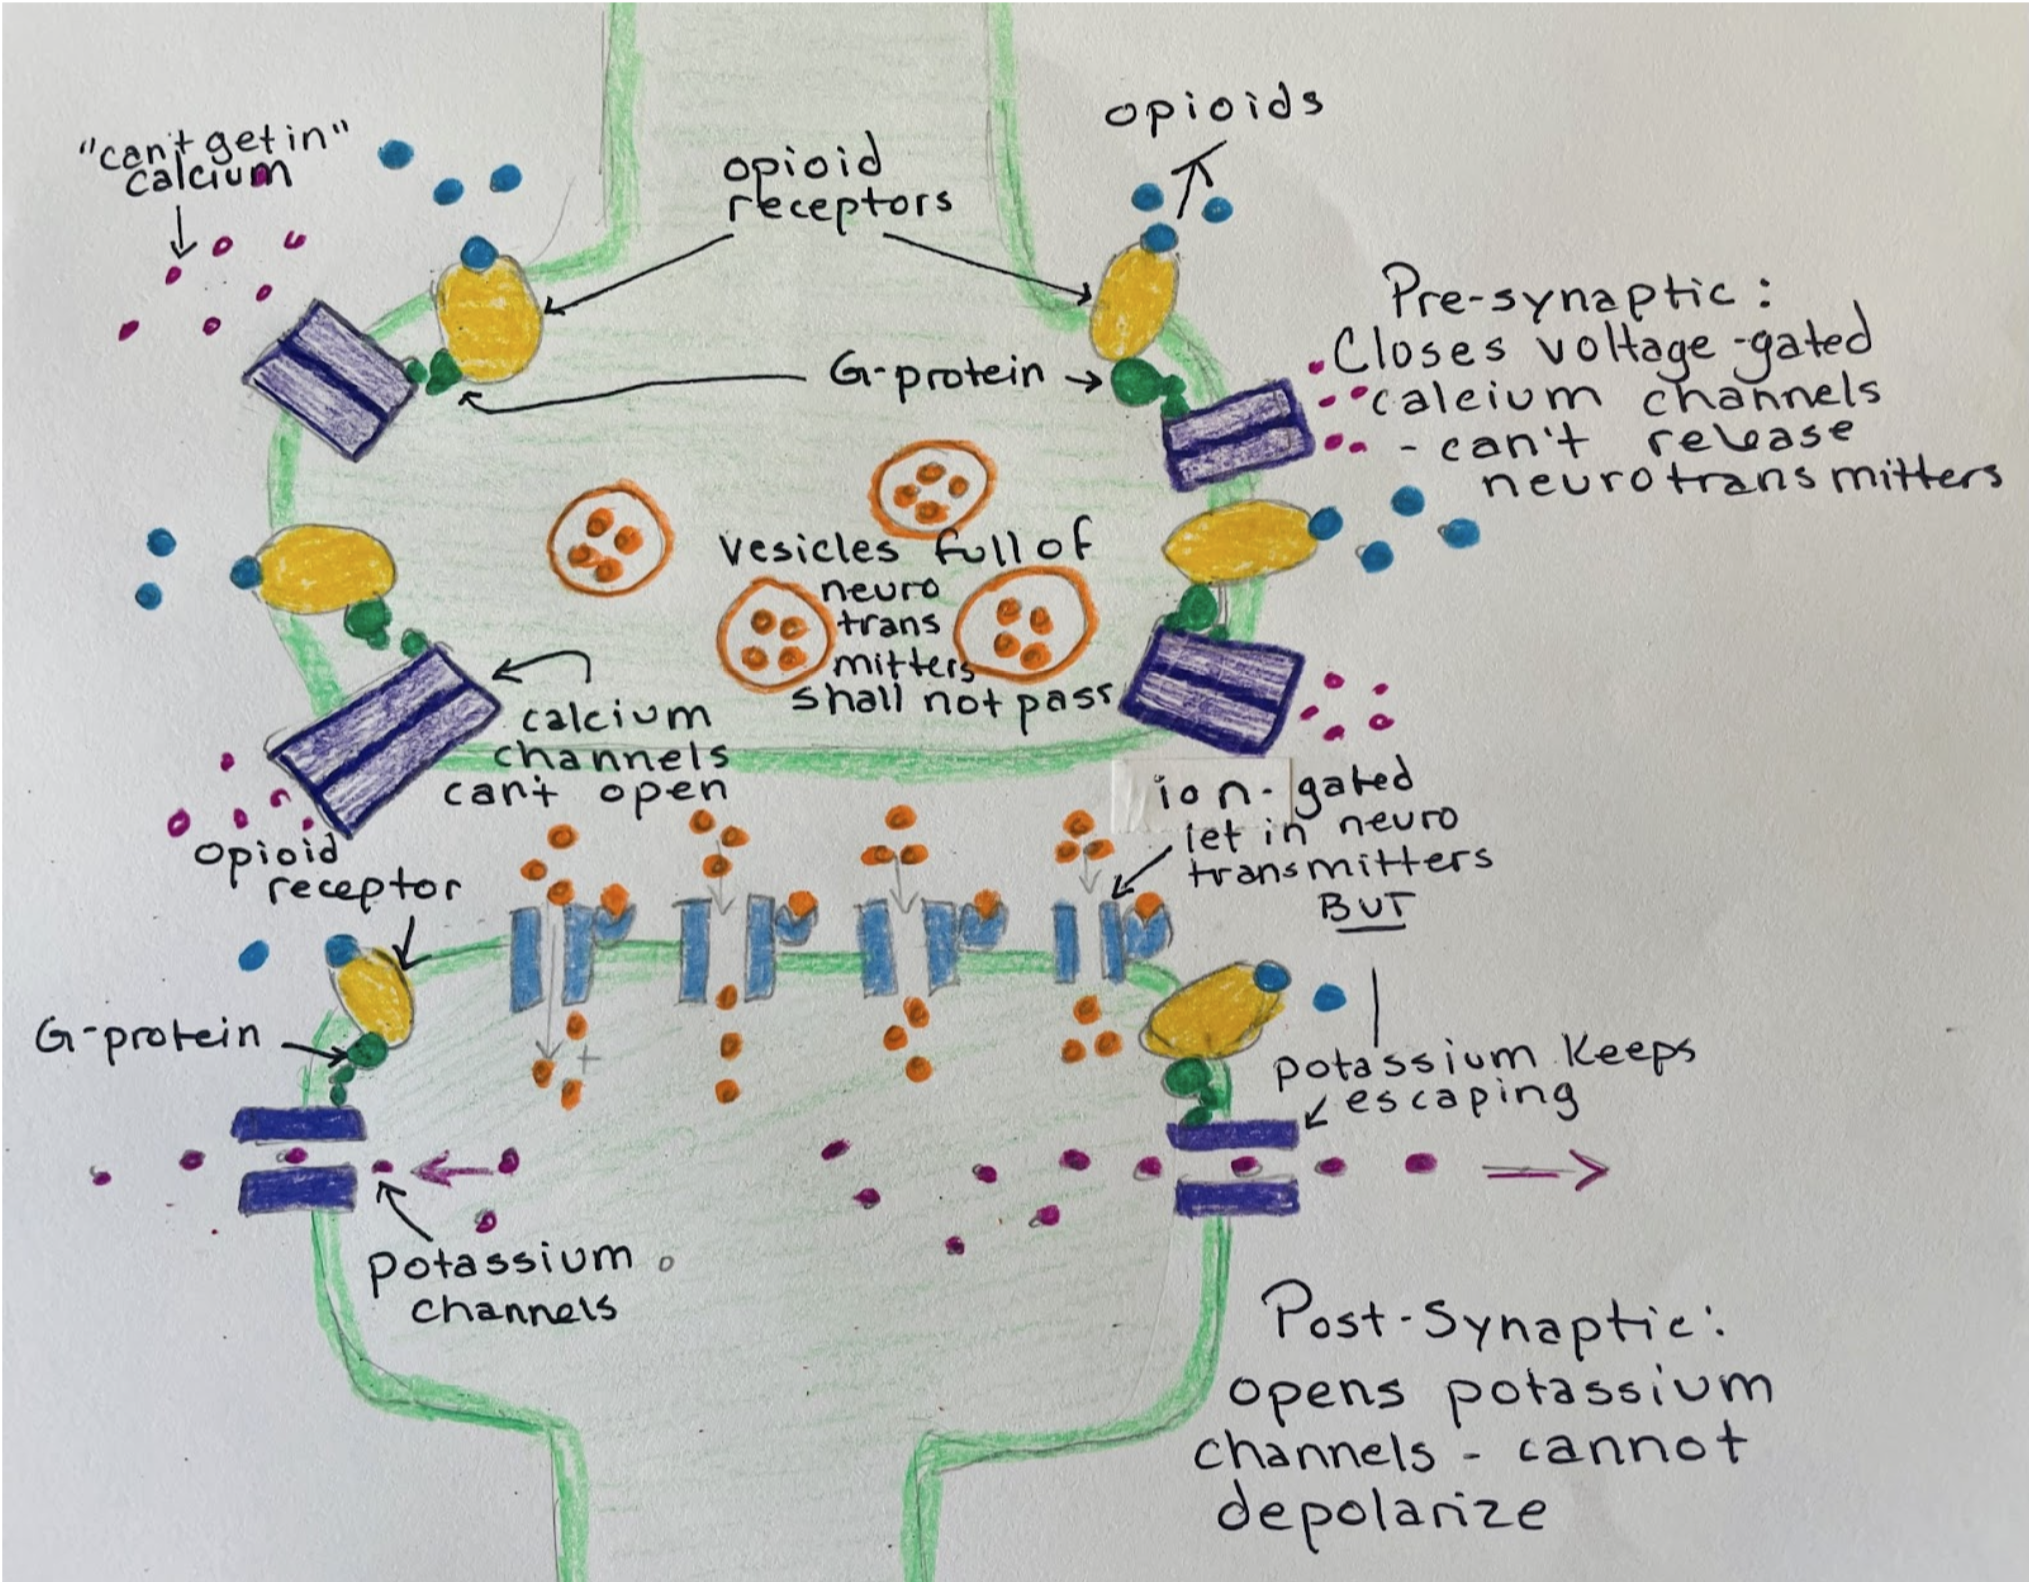 "can't get in"
calcium
opioid
receptors
opioids
Pre-synaptic:
Closes voltage-gated
calcium channels
- can't release
neurotransmitters
G-protein
vesicles full of
neuro
trans
mitters
shall not pass
calcium
channels
can't open
ion-gated
let in neuro
transmitters
BUT
opioid
receptor
G-protein
+
potassium keeps
escaping
potassium
channels
Post-Synaptic:
opens potassium
channels - cannot
depolarize